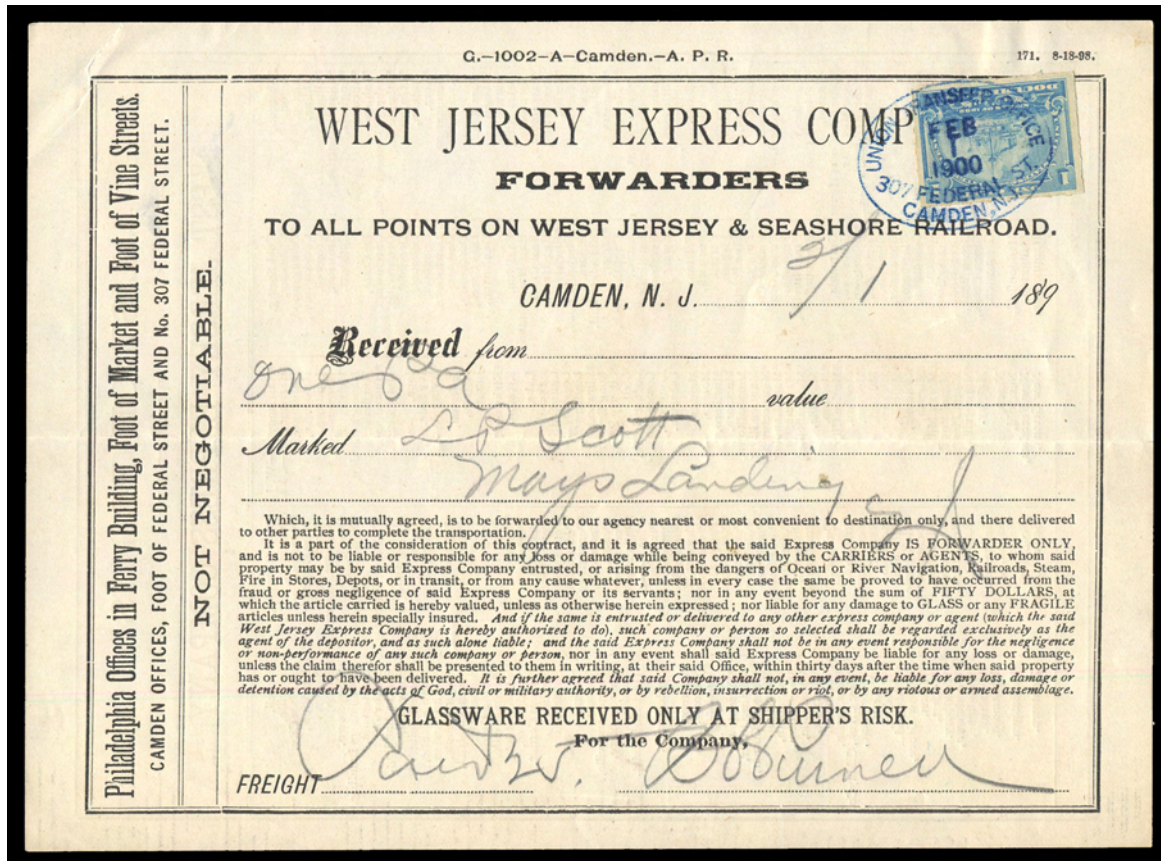 G.—1002—A—Camden.—A. P. R.
171. 8-18-98.
WEST JERSEY EXPRESS COMP
FORWARDERS
TO ALL POINTS ON WEST JERSEY & SEASHORE RAILROAD.
UNION TRANSFER OFFICE
FEB
1
1900
307 FEDERAL ST.
CAMDEN, N.J.
CAMDEN, N. J. 2/1 189
Received from
One value
Marked Scott
Mays Landing NJ
Which, it is mutually agreed, is to be forwarded to our agency nearest or most convenient to destination only, and there delivered
to other parties to complete the transportation.
It is a part of the consideration of this contract, and it is agreed that the said Express Company IS FORWARDER ONLY,
and is not to be liable or responsible for any loss or damage while being conveyed by the CARRIERS or AGENTS, to whom said
property may be by said Express Company entrusted, or arising from the dangers of Ocean or River Navigation, Railroads, Steam,
Fire in Stores, Depots, or in transit, or from any cause whatever, unless in every case the same be proved to have occurred from the
fraud or gross negligence of said Express Company or its servants; nor in any event beyond the sum of FIFTY DOLLARS, at
which the article carried is hereby valued, unless as otherwise herein expressed; nor liable for any damage to GLASS or any FRAGILE
articles unless herein specially insured. And if the same is entrusted or delivered to any other express company or agent (which the said
West Jersey Express Company is hereby authorized to do), such company or person so selected shall be regarded exclusively as the
agent of the depositor, and as such alone liable; and the said Express Company shall not be in any event responsible for the negligence
or non-performance of any such company or person, nor in any event shall said Express Company be liable for any loss or damage,
unless the claim therefor shall be presented to them in writing, at their said Office, within thirty days after the time when said property
has or ought to have been delivered. It is further agreed that said Company shall not, in any event, be liable for any loss, damage or
detention caused by the acts of God, civil or military authority, or by rebellion, insurrection or riot, or by any riotous or armed assemblage.
GLASSWARE RECEIVED ONLY AT SHIPPER'S RISK.
For the Company,
FREIGHT
Philadelphia Offices in Ferry Building, Foot of Market and Foot of Vine Streets.
CAMDEN OFFICES, FOOT OF FEDERAL STREET AND No. 307 FEDERAL STREET.
NOT NEGOTIABLE.